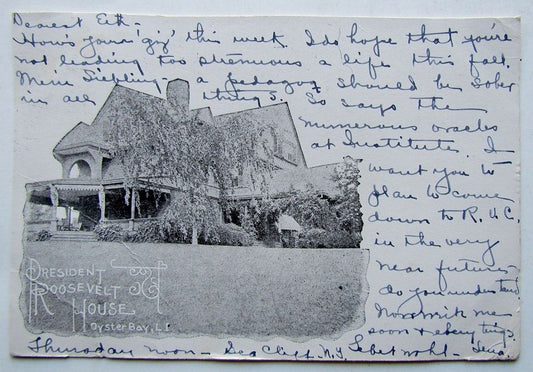 Dearest Eth-
How's your 'gig' this week. I do hope that you're
not leading too strenuous a life this fall.
Mein Siebling - a pedagog should be sober
in all things. So says the
numerous oracles
at Institutes. I
want you to
plan to come
down to R.V.C.
in the very
near future -
do you understand
Now write me
soon & every thing.
PRESIDENT
ROOSEVELT
HOUSE
OYSTER BAY, L.I.
Thursday noon - Sea Cliff, N.Y. Lebet wohl -